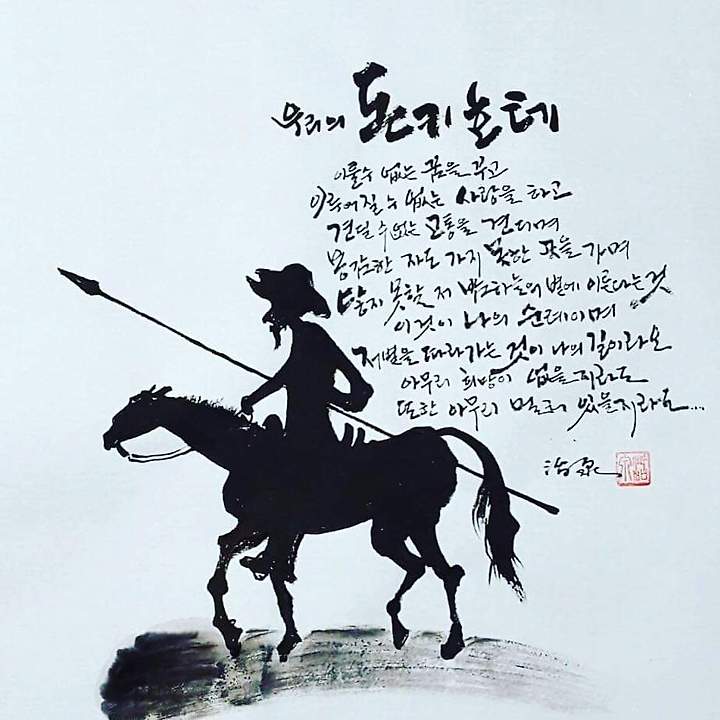 우리의 돈키호테
이룰수 없는 꿈을 꾸고
이루어질 수 없는 사랑을 하고
견딜 수 없는 고통을 견디며
용감한 자도 가지 못한 곳을 가며
닿지 못할 저 밤하늘의 별에 이른다는 것
이것이 나의 순례이며
저별을 따라가는 것이 나의 길이라오
아무리 희망이 없을지라도
또한 아무리 멀리 있을지라도...